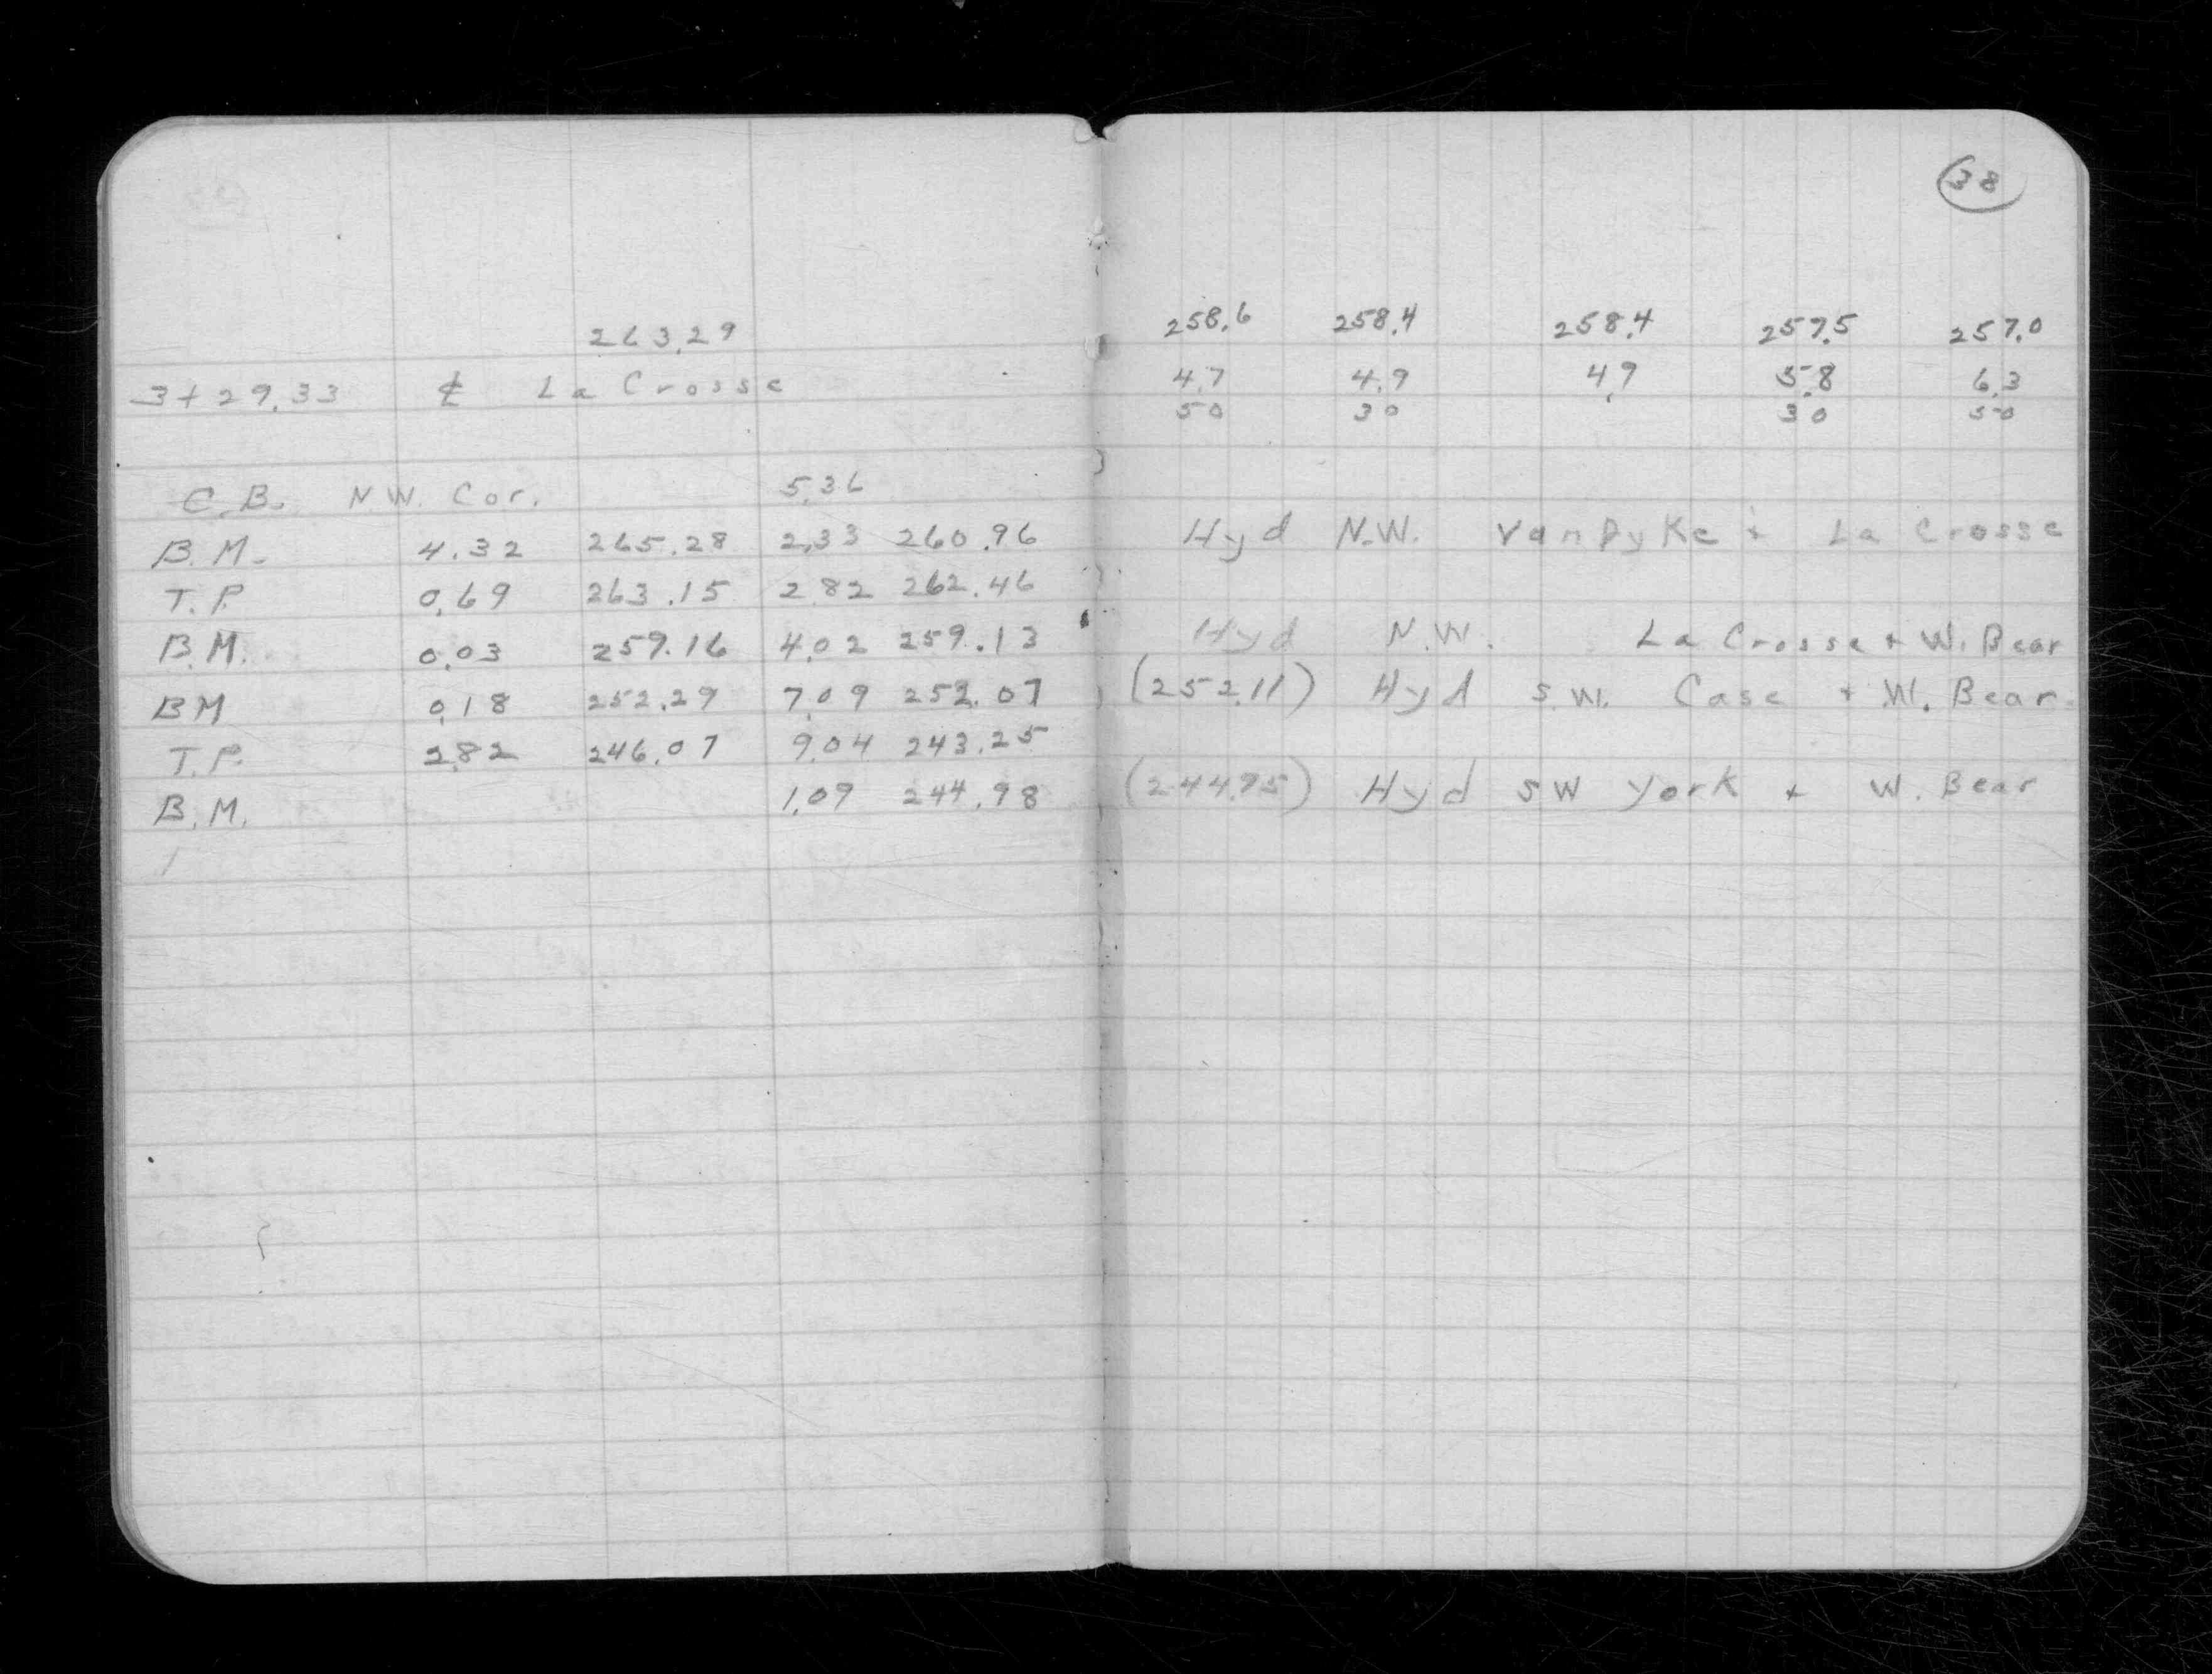 38
263.29
3+29.33 ₵ La Crosse
C.B. N.W. Cor. 5.36
B.M. 4.32 265.28 2.33 260.96
T.P. 0.69 263.15 2.82 262.46
B.M. 0.03 259.16 4.02 259.13
BM 0.18 252.29 7.09 252.07
T.P. 2.82 246.07 9.04 243.25
B.M. 1.09 244.98
258.6 258.4 258.4 257.5 257.0
4.7 4.9 4.9 5.8 6.3
50 30 30 50
Hyd N.W. VanDyke + La Crosse
Hyd N.W. La Crosse + W. Bear
(252.11) Hyd S.W. Case + W. Bear
(244.95) Hyd SW York + W. Bear